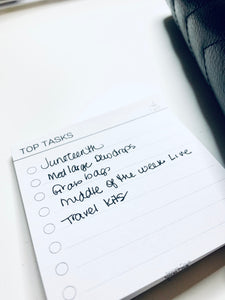 TOP TASKS
Juneteenth
Med large Dewdrops
Grass bags
Middle of the week Live
Travel Kits